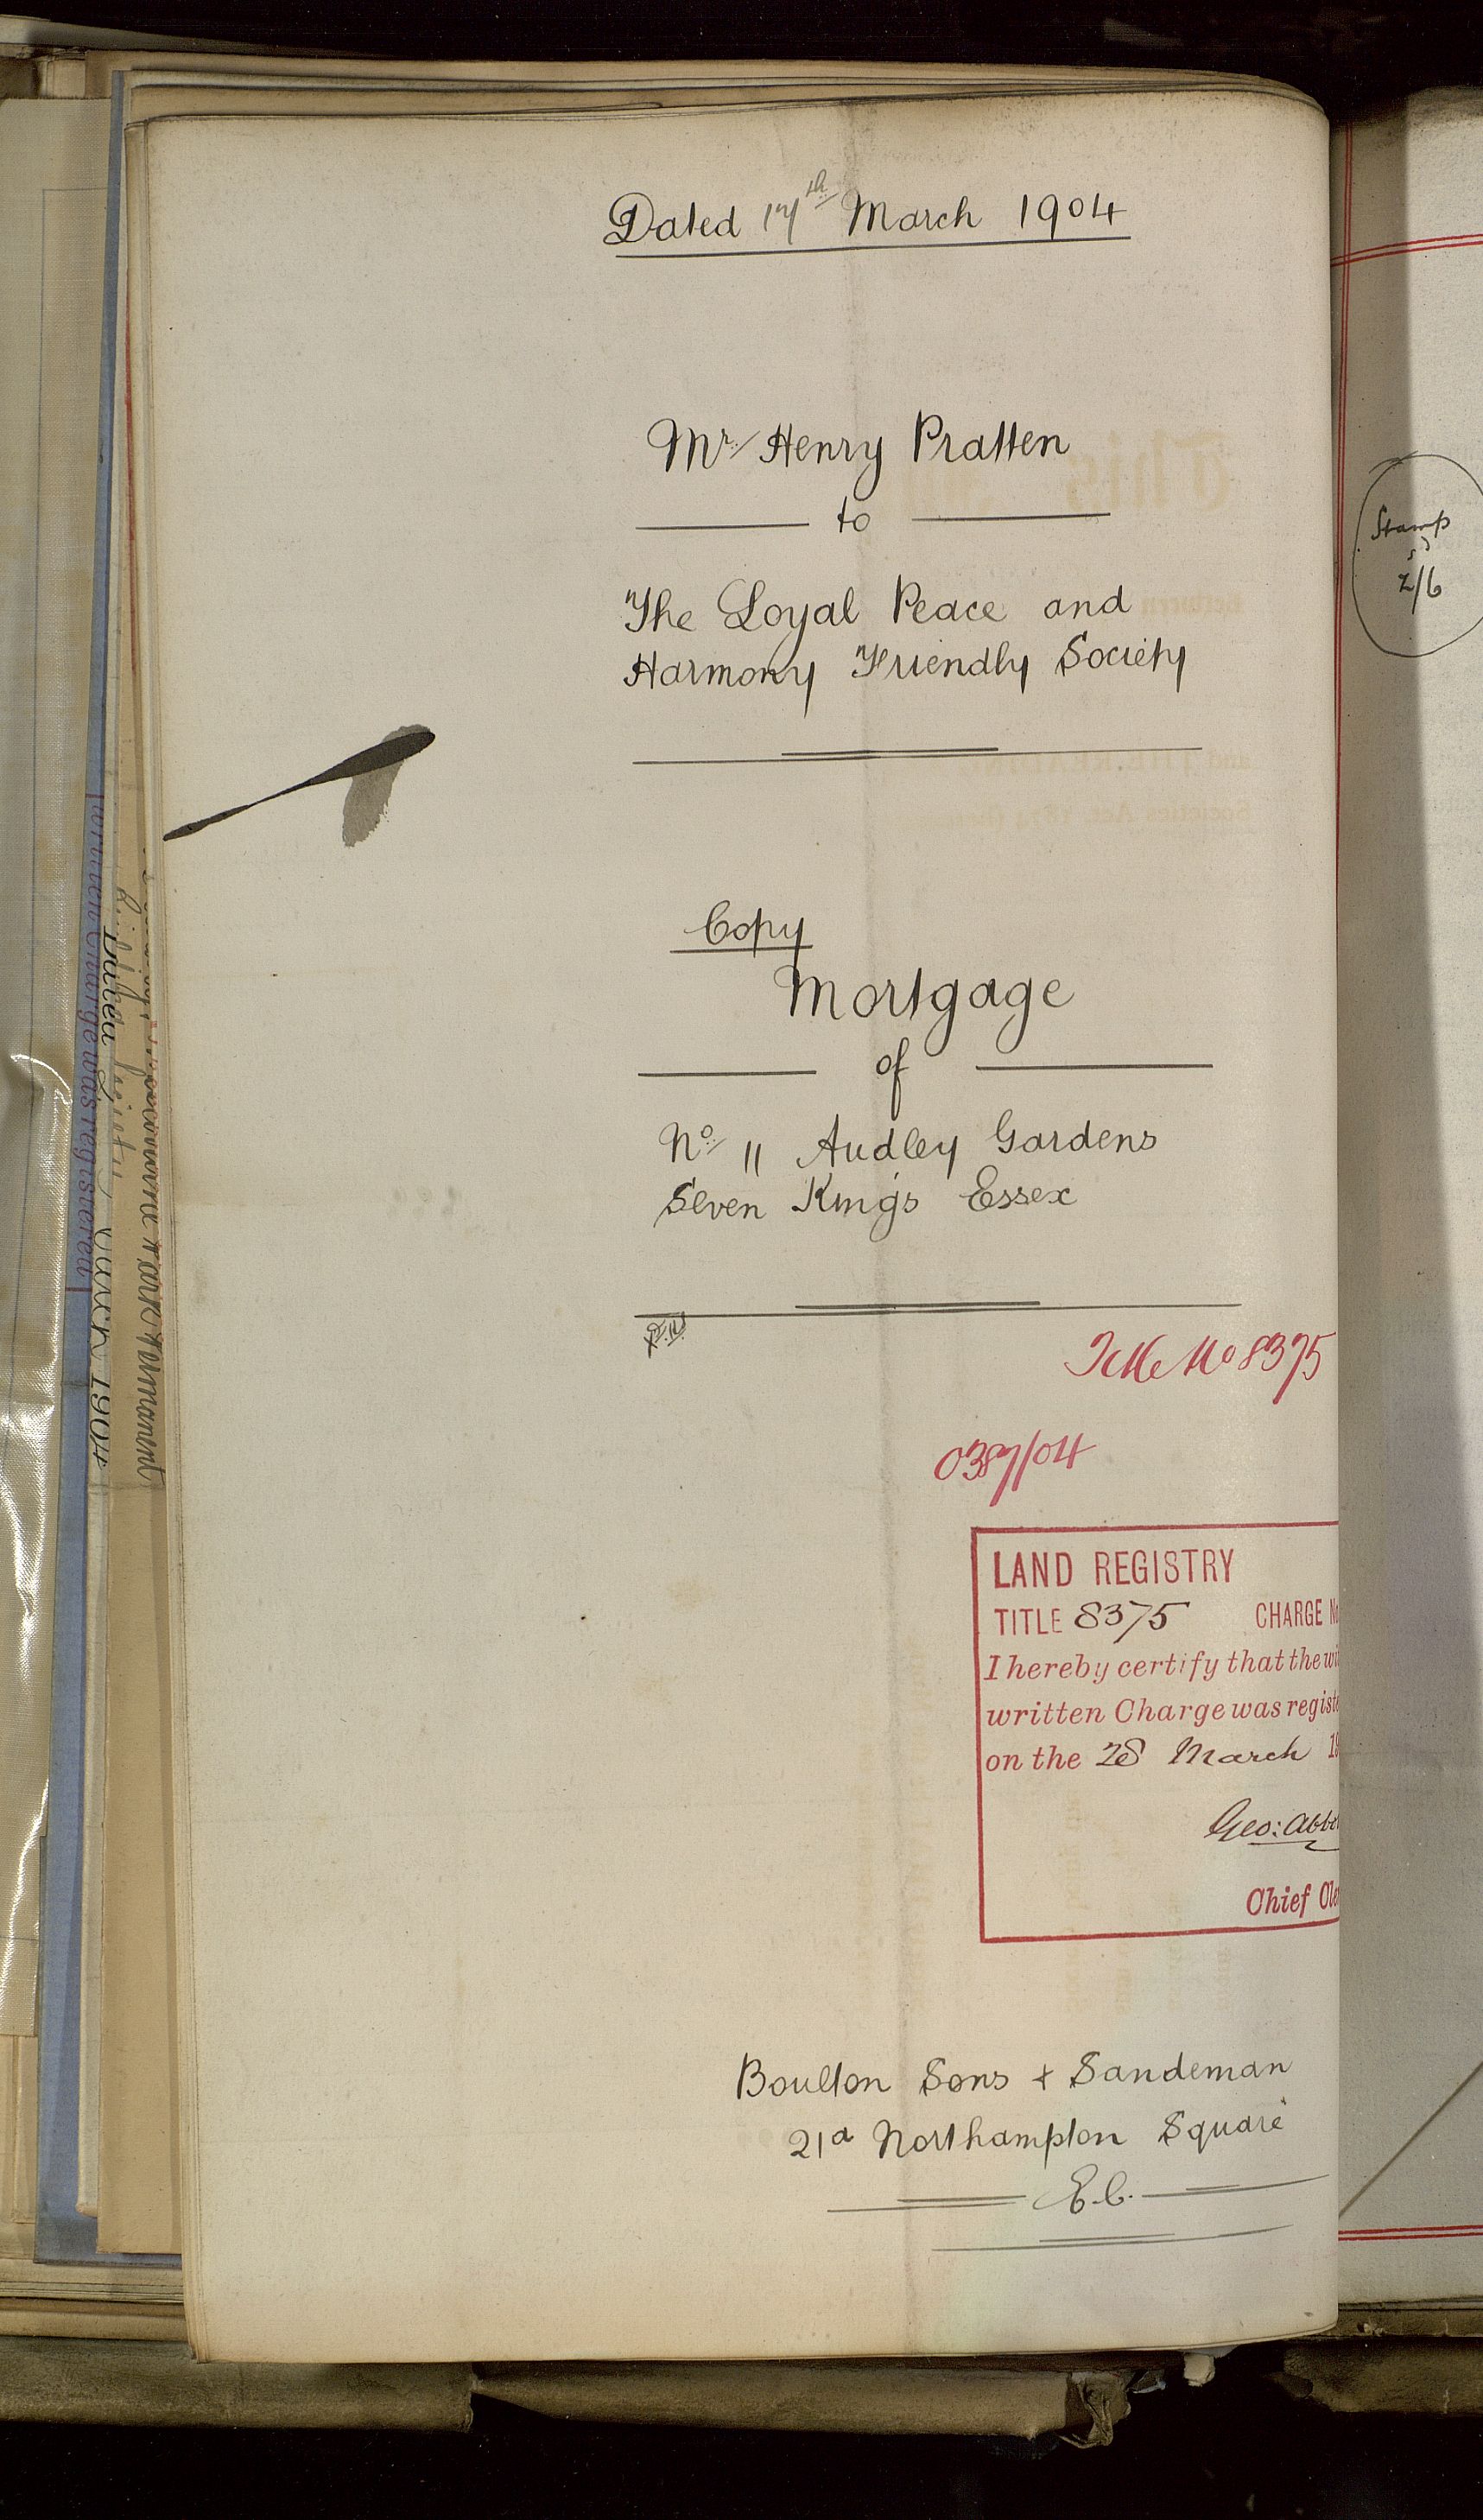 Dated 17th March 1904
Mr Henry Pratten
to
The Loyal Peace and
Harmony Friendly Society
Copy
Mortgage
of
No 11 Audley Gardens
Seven Kings Essex
Title No 8375
0387/04
LAND REGISTRY
TITLE 8375 CHARGE No
I hereby certify that the wi
written Charge was registe
on the 28 March 19
Geo: Abbo
Chief Cle
Boulton Sons & Sandeman
21a Northampton Square
E.C.
Stamp
2/6
written Charge was registered
Dated
March 1904
Permanent